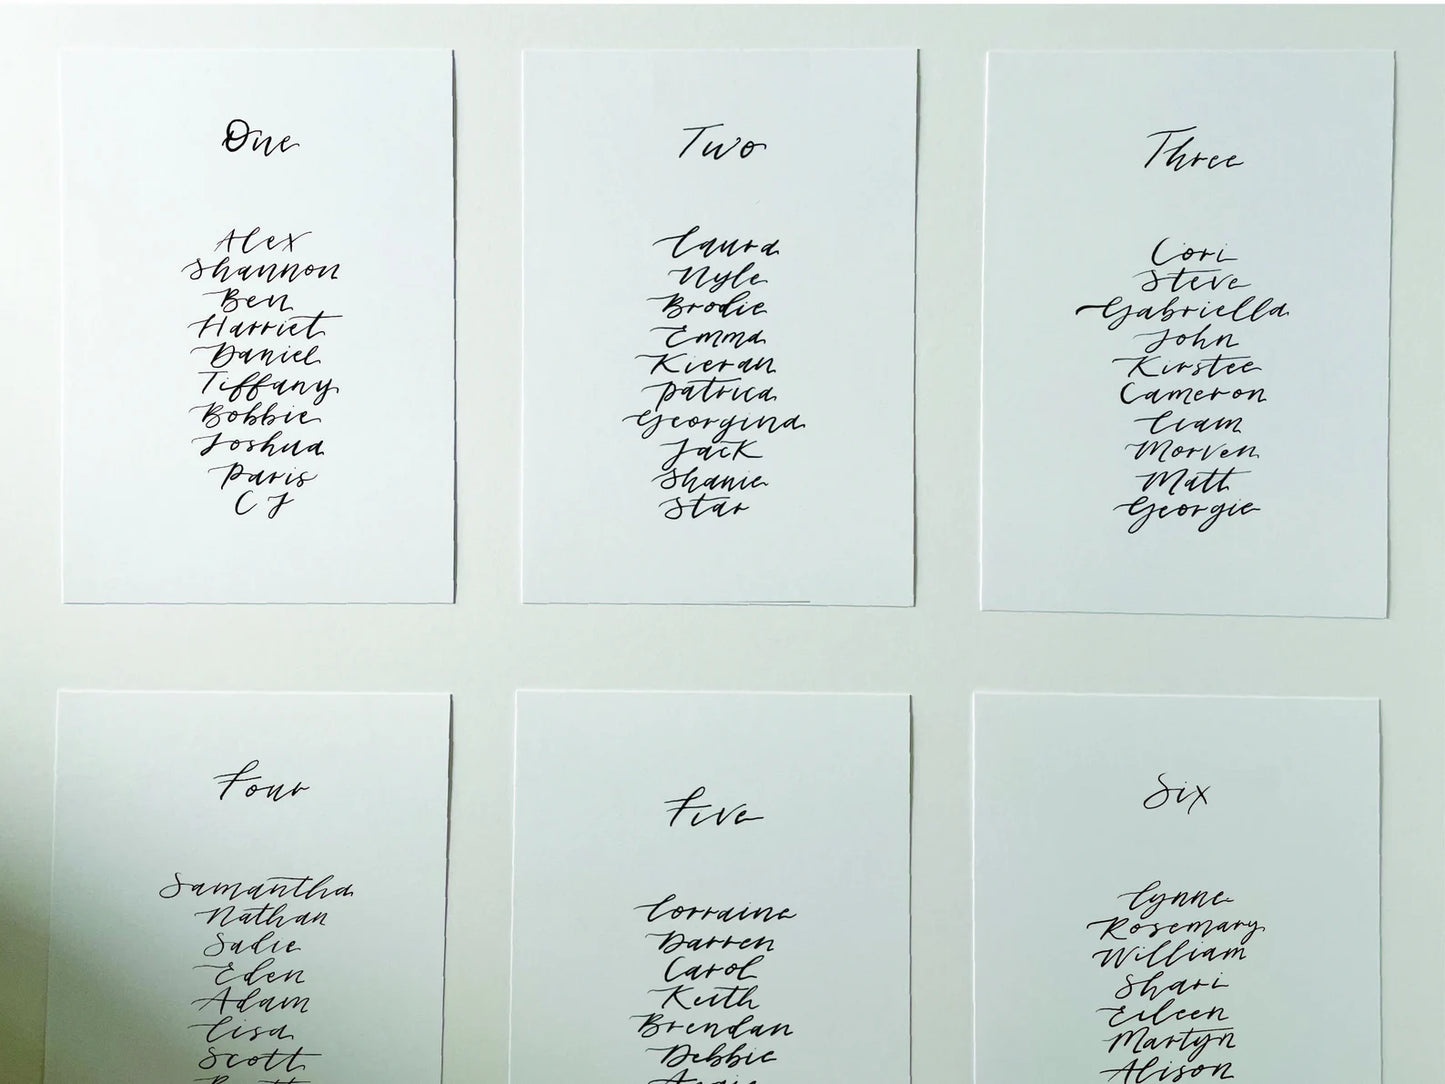 One
Alex
Shannon
Ben
Harriet
Daniel
Tiffany
Bobbie
Joshua
Paris
CJ
Two
Laura
Nyle
Brodie
Emma
Kieran
Patrica
Georgina
Jack
Shanie
Star
Three
Cori
Steve
Gabriella
John
Kirstee
Cameron
Liam
Morven
Matt
Georgie
Four
Samantha
Nathan
Sadie
Eden
Adam
Lisa
Scott
Five
Lorraine
Darren
Carol
Keith
Brendan
Debbie
Six
Lynne
Rosemary
William
Shari
Eileen
Martyn
Alison